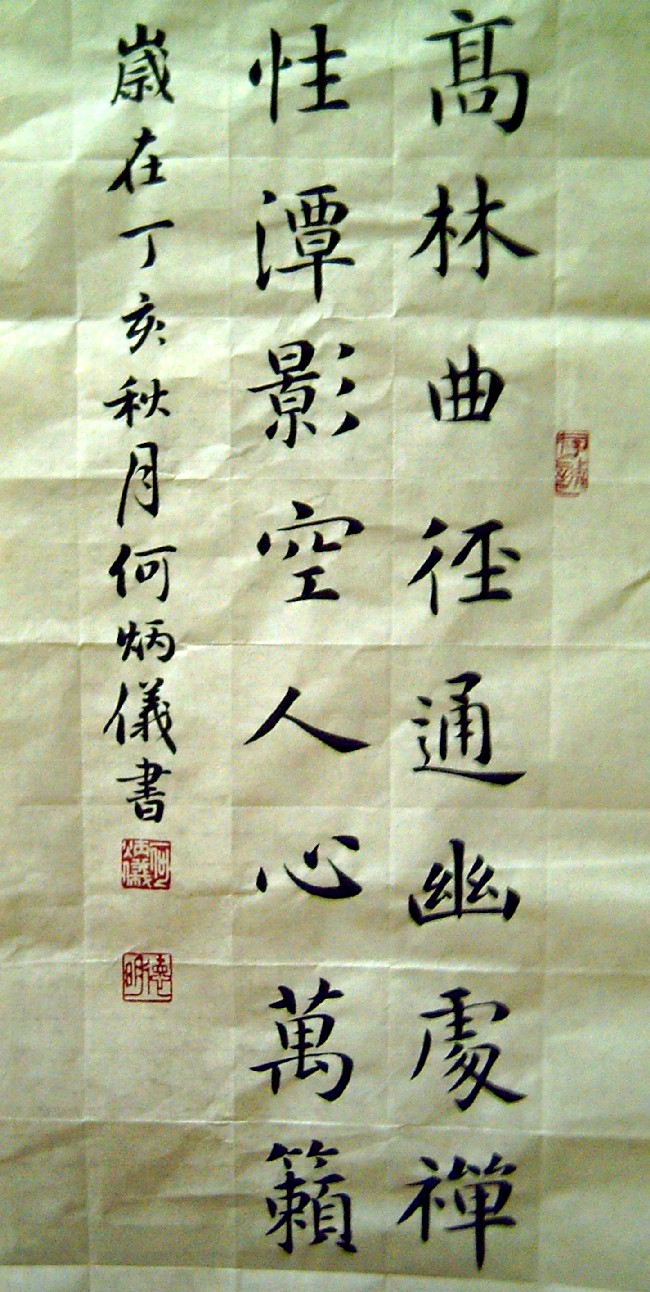 高林曲徑通幽處禪
性潭影空人心萬籟
歲在丁亥秋月何炳儀書
何炳儀
德明